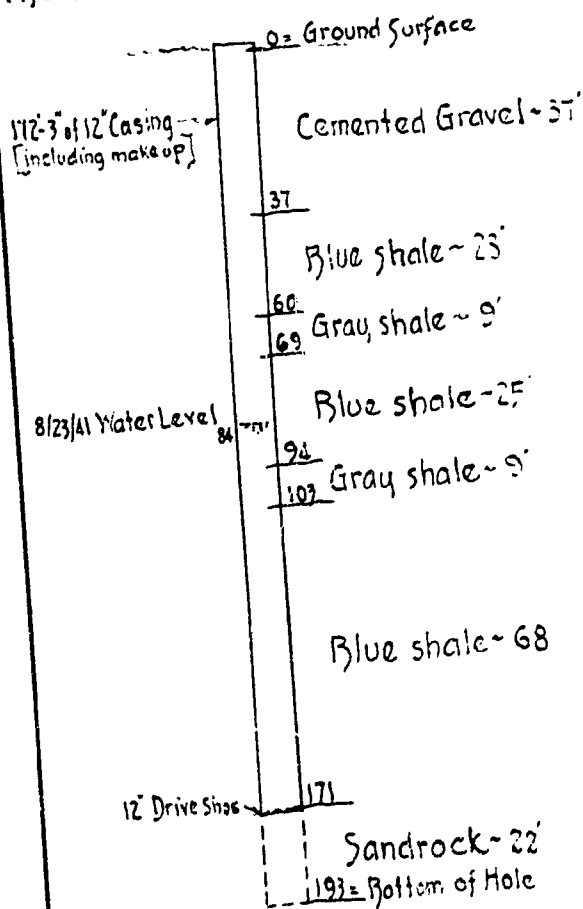 0= Ground Surface
172'-3" of 12" Casing
[including make up]
Cemented Gravel ~ 37'
37
Blue shale ~ 23'
60
Gray shale ~ 9'
69
Blue shale ~ 25'
8/23/41 Water Level
84
94
Gray shale ~ 9'
103
Blue shale ~ 68
12" Drive Shoe
171
Sandrock ~ 22'
193= Bottom of Hole